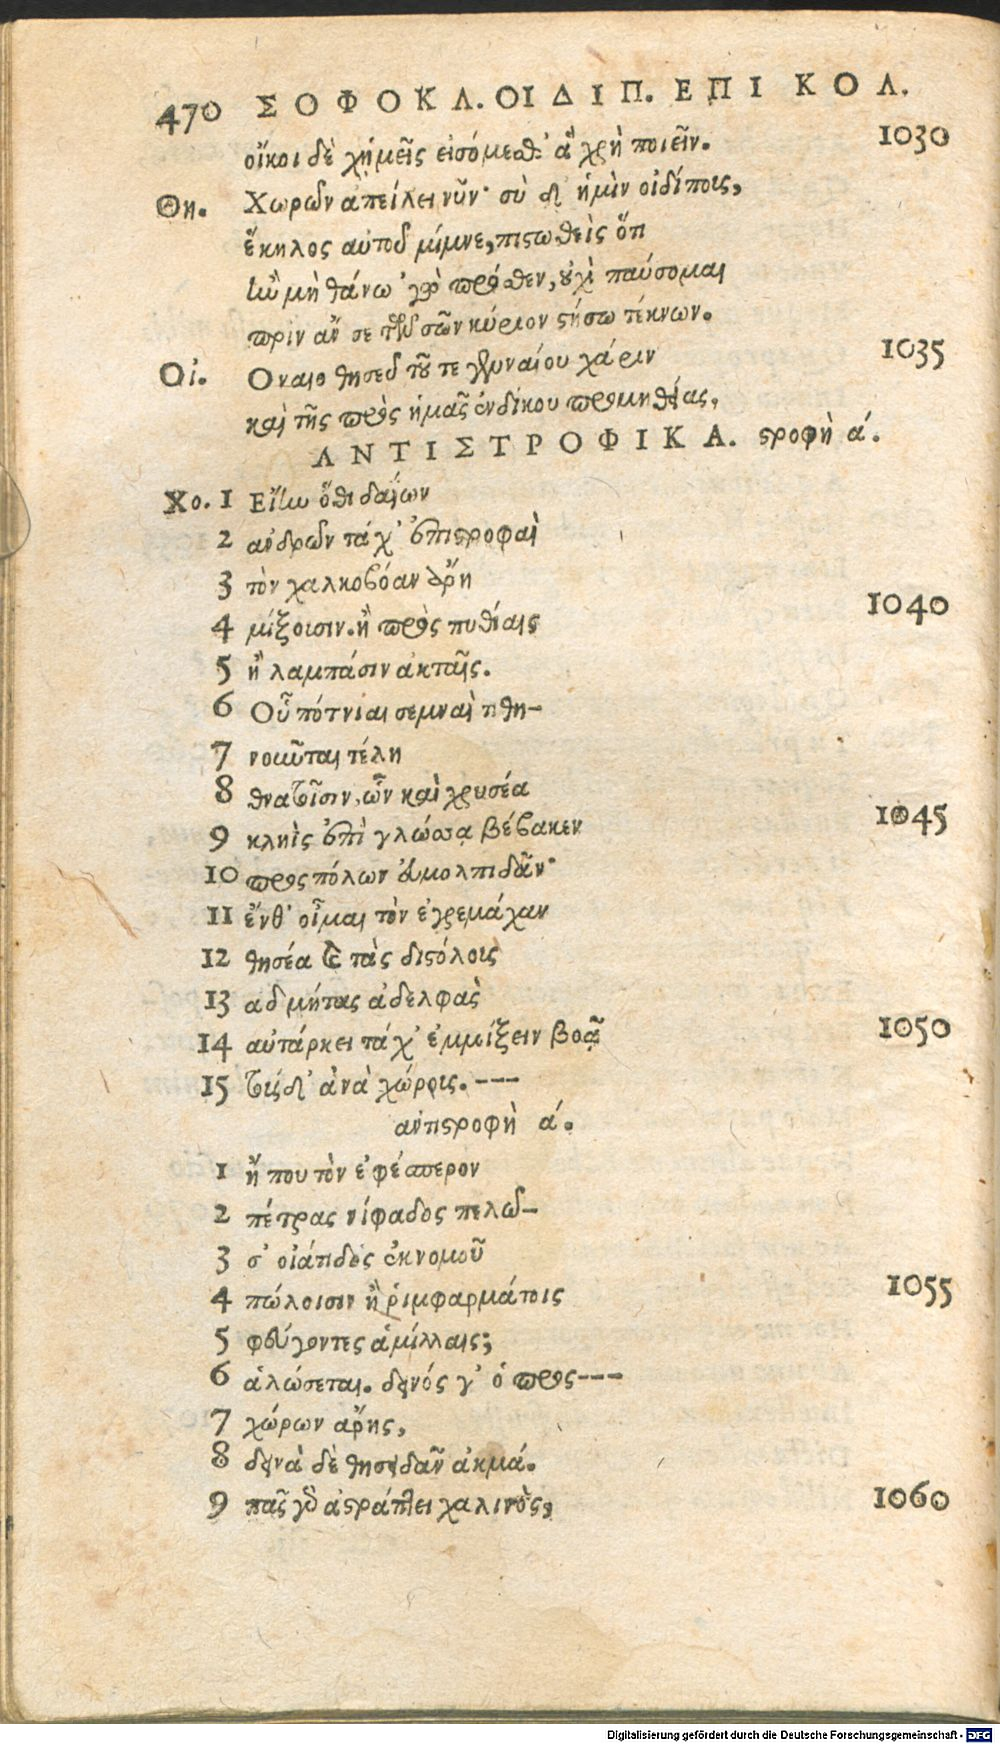 470 ΣΟΦΟΚΛ. ΟΙΔΙΠ. ΕΠΙ ΚΟΛ.
οἴκοι δὲ χἡμεῖς εἰσόμεσθ' ἃ χρὴ ποιεῖν. 1030
Θη. Χωρῶν ἀπείλει νῦν· σὺ δ' ἡμὶν οἰδίποις,
ἕκηλος αὐτοῦ μίμνε, πιστωθεὶς ὅτι
ἢν μὴ θάνω 'γὼ πρόσθεν, οὐχὶ παύσομαι
πρὶν ἄν σε τῶν σῶν κύριον στήσω τέκνων.
Οἰ. Οναιο θησεῦ τοῦ τε γενναίου χάριν 1035
καὶ τῆς πρὸς ἡμᾶς ἐνδίκου προμηθίας,
ΑΝΤΙΣΤΡΟΦΙΚΑ. στροφὴ ά.
Χο. 1 Εἴην ὅθι δαΐων
2 ἀνδρῶν τάχ' ἐπιστροφαὶ
3 τὸν χαλκοβόαν ἄρη
4 μίξοισιν. ἢ πρὸς πυθίαις 1040
5 ἢ λαμπάσιν ἀκταῖς.
6 Οὗ πότνιαι σεμναὶ τιθη-
7 νοῦνται τέλη
8 θνατοῖσιν, ὧν καὶ χρυσέα
9 κληῒς ἐπὶ γλώσσᾳ βέβακεν 1045
10 προςπόλων εὐμολπιδᾶν·
11 ἔνθ' οἶμαι τὸν ἐγρεμάχαν
12 θησέα καὶ τὰς διστόλοις
13 ἀδμήτας ἀδελφὰς
14 αὐτάρκει τάχ' ἐμμίξειν βοᾷ 1050
15 τούςδ' ἀνὰ χώροις. ---
ἀντιστροφὴ ά.
1 ἤ που τὸν ἐφέσπερον
2 πέτρας νίφαδος πελῶ-
3 σ' οἰάτιδος ἐκ νομοῦ
4 πώλοισιν ἢ ῥιμφαρμάτοις 1055
5 φεύγοντες ἁμίλλαις;
6 ἁλώσεται. δεινός γ' ὁ προς---
7 χώρων ἄρης,
8 δεινὰ δὲ θησειδᾶν ἀκμά.
9 πᾶς γὰρ ἀστράπτει χαλινὸς, 1060
Digitalisierung gefördert durch die Deutsche Forschungsgemeinschaft - DFG